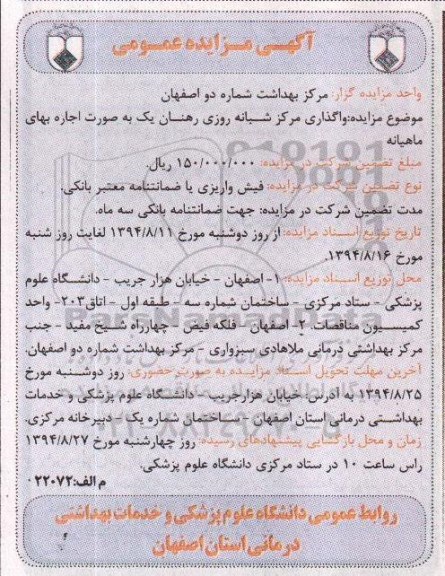 آگهی مزایده عمومی
واحد مزایده گزار: مرکز بهداشت شماره دو اصفهان
موضوع مزایده:واگذاری مرکز شبانه روزی رهنان یک به صورت اجاره بهای
ماهیانه
مبلغ تضمین شرکت در مزایده: ۱۵۰/۰۰۰/۰۰۰ ریال.
نوع تضمین شرکت در مزایده: فیش واریزی یا ضمانتنامه معتبر بانکی.
مدت تضمین شرکت در مزایده: جهت ضمانتنامه بانکی سه ماه.
تاریخ توزیع اسناد مزایده: از روز دوشنبه مورخ ۱۳۹۴/۸/۱۱ لغایت روز شنبه
مورخ ۱۳۹۴/۸/۱۶.
محل توزیع اسناد مزایده: ۱- اصفهان - خیابان هزار جریب - دانشگاه علوم
پزشکی - ستاد مرکزی - ساختمان شماره سه - طبقه اول - اتاق۲۰۳- واحد
کمیسیون مناقصات. ۲- اصفهان - فلکه فیض - چهارراه شیخ مفید - جنب
مرکز بهداشتی درمانی ملاهادی سبزواری - مرکز بهداشت شماره دو اصفهان.
آخرین مهلت تحویل اسناد مزایده به صورت حضوری: روز دوشنبه مورخ
۱۳۹۴/۸/۲۵ به آدرس: خیابان هزارجریب - دانشگاه علوم پزشکی و خدمات
بهداشتی درمانی استان اصفهان - ساختمان شماره یک - دبیرخانه مرکزی.
زمان و محل بازگشایی پیشنهادهای رسیده: روز چهارشنبه مورخ ۱۳۹۴/۸/۲۷
راس ساعت ۱۰ در ستاد مرکزی دانشگاه علوم پزشکی.
م الف:۲۲۰۷۲۰
روابط عمومی دانشگاه علوم پزشکی و خدمات بهداشتی
درمانی استان اصفهان
ParsNamadData